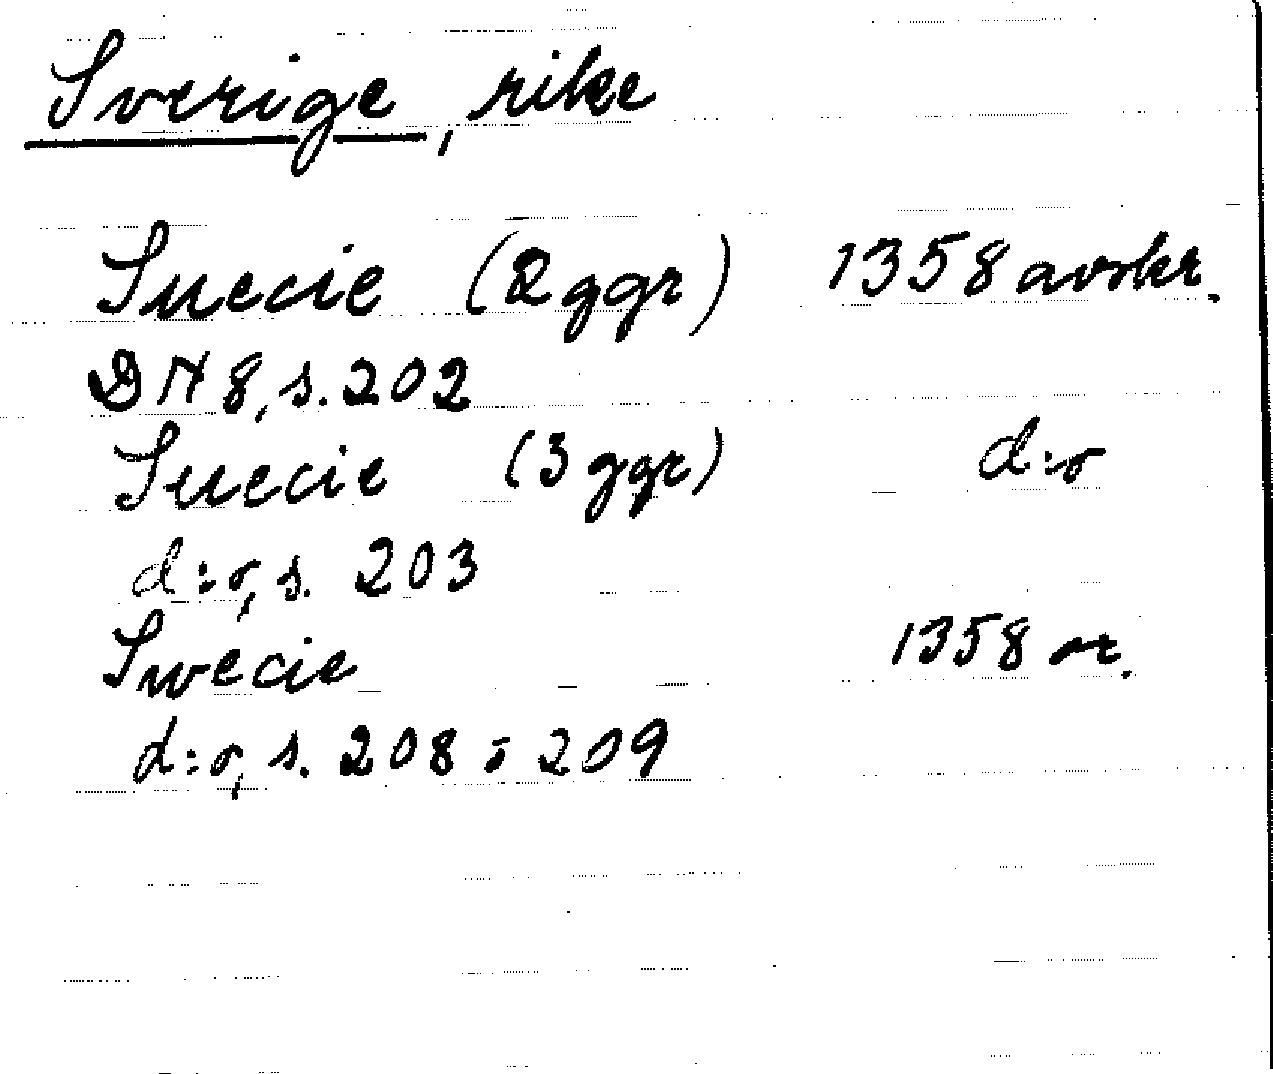 Sverige, rike
Suecie (2 ggr) 1358 avskr.
DN 8, s. 202
Suecie (3 ggr) d:o
d:o, s. 203
Swecie 1358 or.
d:o, s. 208 o 209